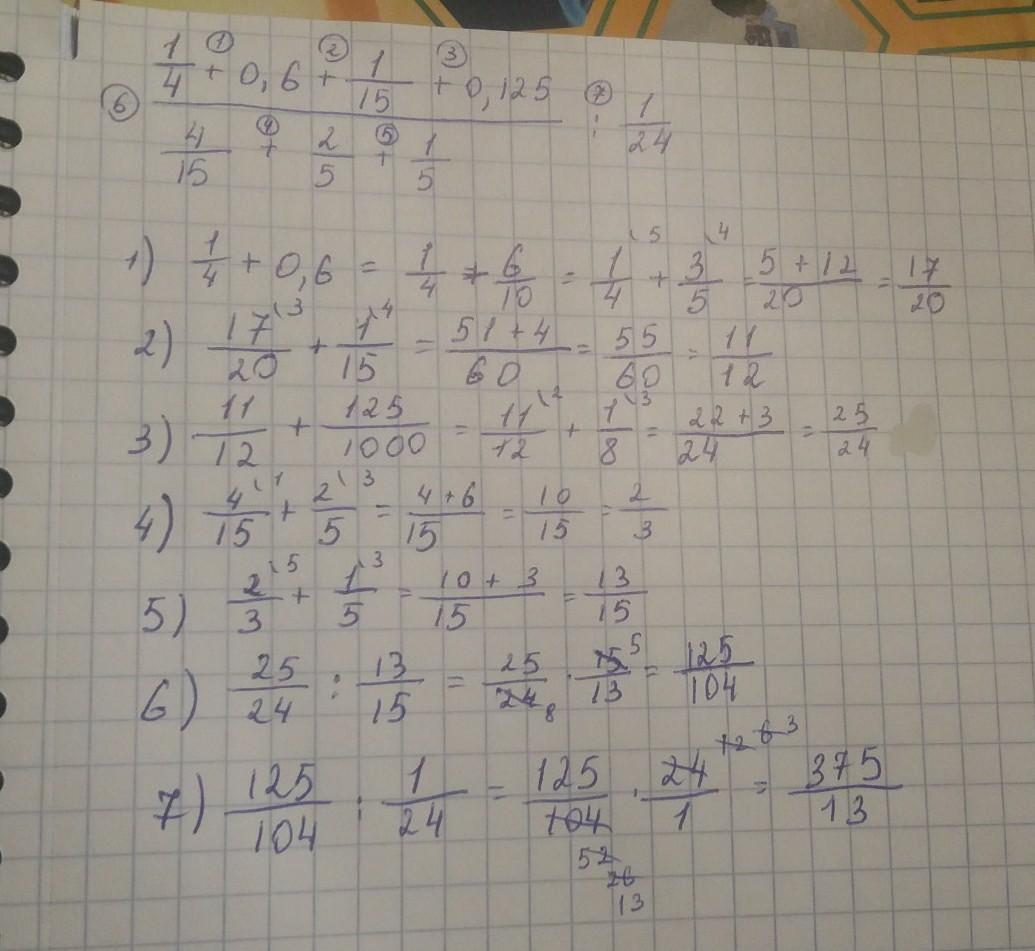 ⑥ (1/4 +① 0,6 +② 1/15 +③ 0,125)/(4/15 +④ 2/5 +⑤ 1/5) :⑦ 1/24
1) 1/4 + 0,6 = 1/4 + 6/10 = 1\5/4 + 3\4/5 = (5 + 12)/20 = 17/20
2) 17\3/20 + 1\4/15 = (51 + 4)/60 = 55/60 = 11/12
3) 11/12 + 125/1000 = 11\2/12 + 1\3/8 = (22 + 3)/24 = 25/24
4) 4\1/15 + 2\3/5 = (4 + 6)/15 = 10/15 = 2/3
5) 2\5/3 + 1\3/5 = (10 + 3)/15 = 13/15
6) 25/24 : 13/15 = 25/24 8 · 15 5/13 = 125/104
7) 125/104 : 1/24 = 125/104 52 26 13 · 24 12 6 3/1 = 375/13